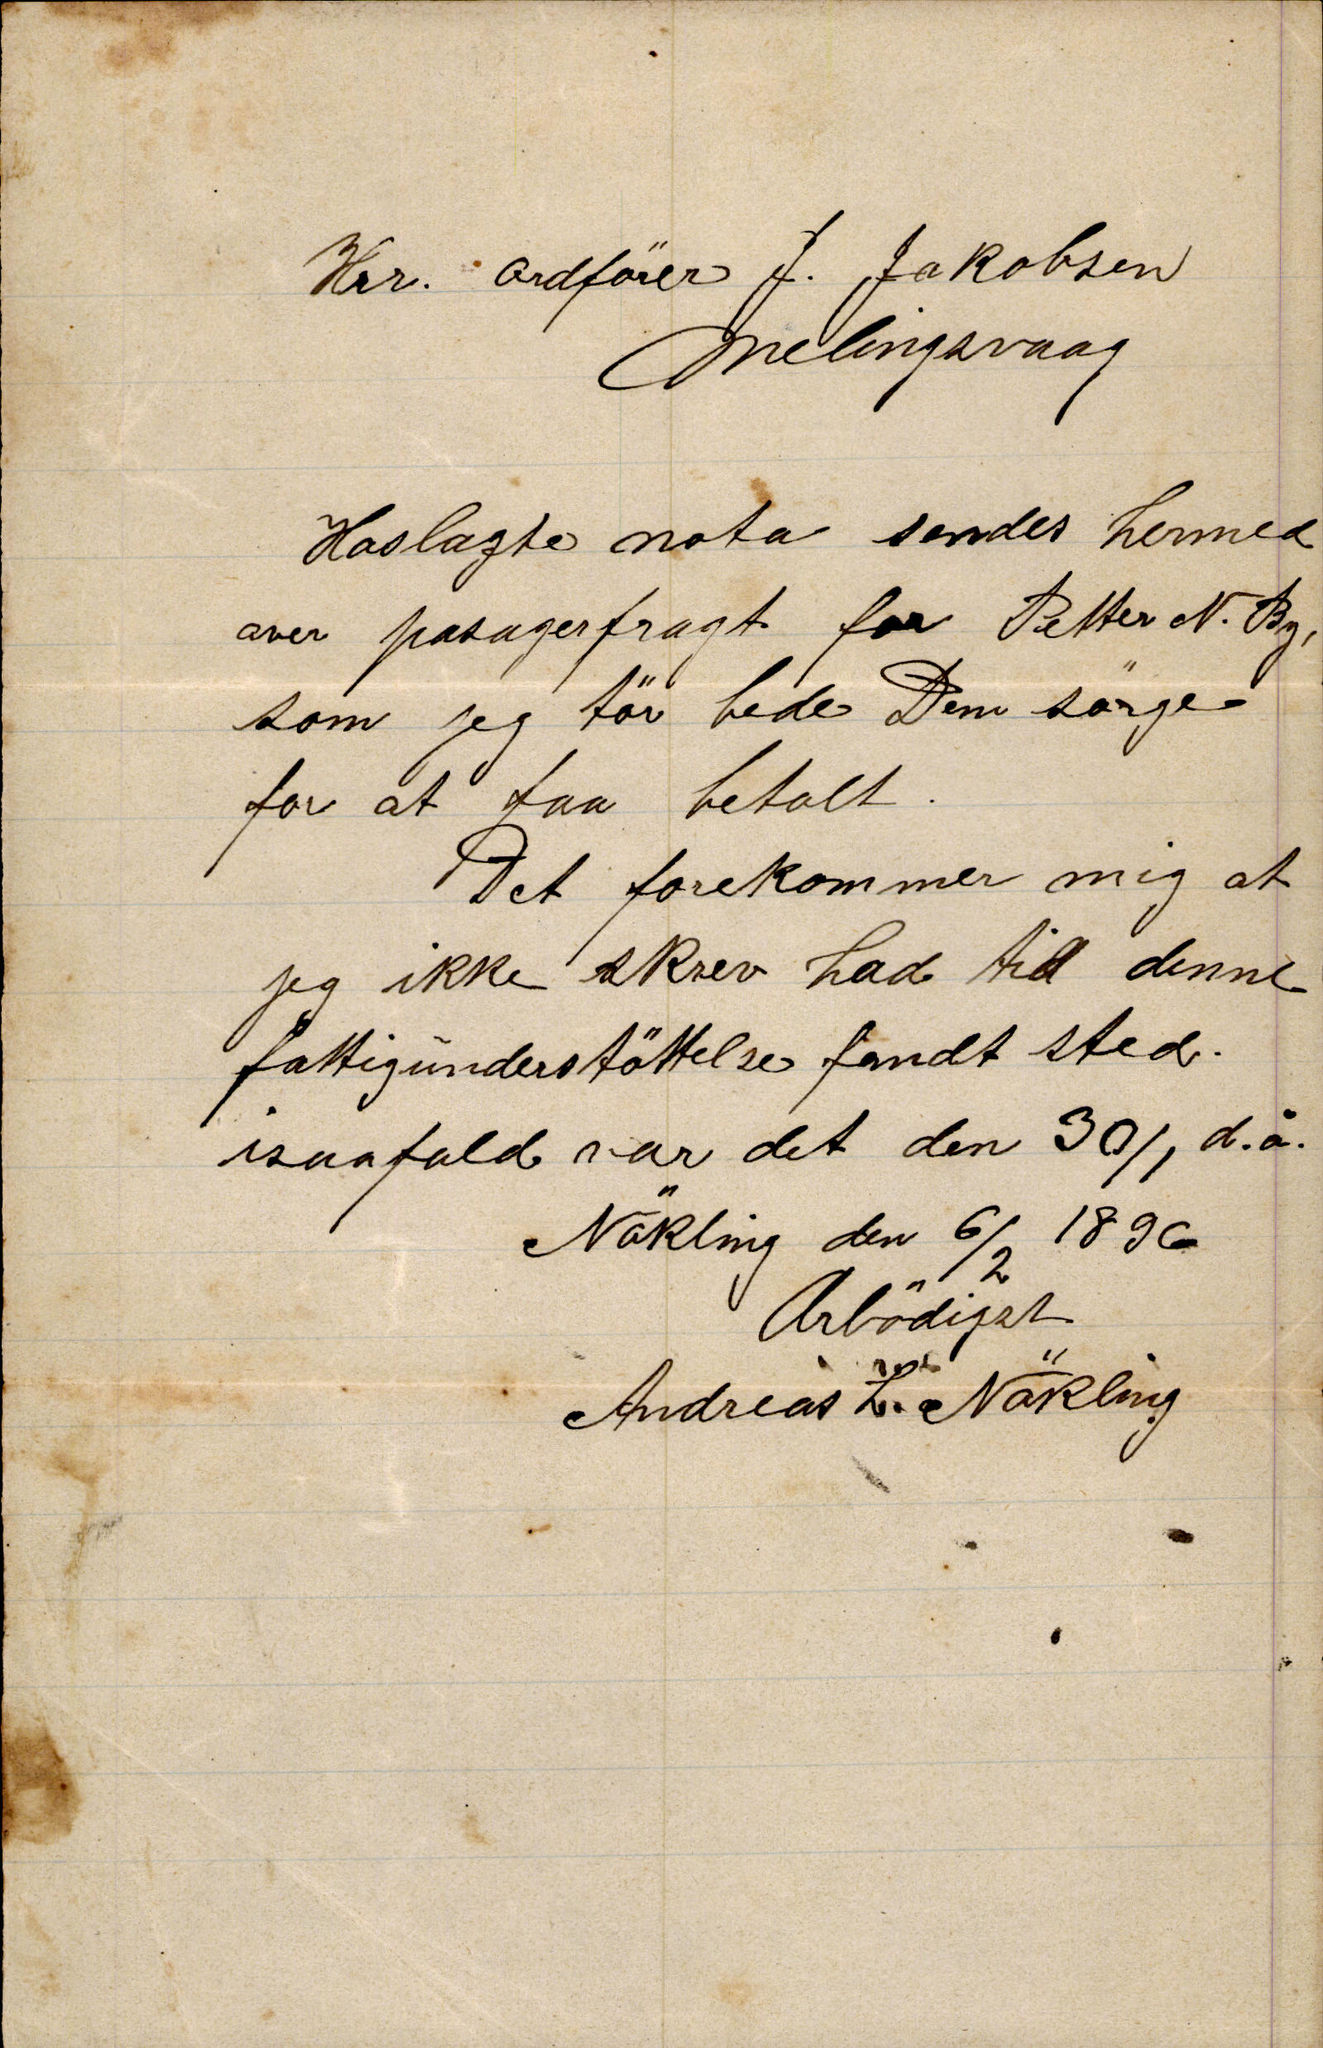 Hrr. ordförer J. Jakobsen
Melingsvaag
Hoslagte nota sendes hermed
over pasagerfragt for Petter N. By,
som jeg tör bede Dem sörge
for at faa betalt.
Det forekommer mig at
jeg ikke skrev had tid denne
fattigunderstöttelse fandt sted.
isaafald var det den 30/1 d.å.
Nökling den 6/2 1896
Arbödigst
Andreas L. Nökling